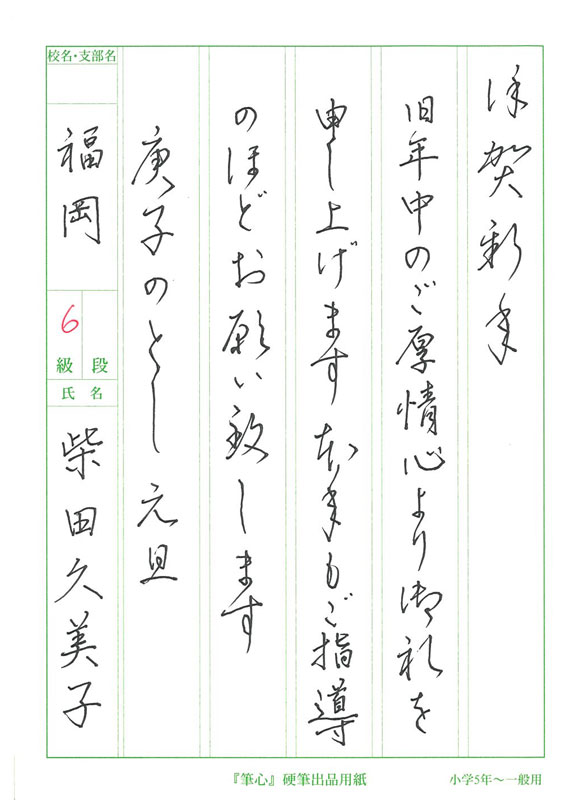 謹賀新年
旧年中のご厚情心より御礼を
申し上げます 本年もご指導
のほどお願い致します
庚子のとし 元旦
校名・支部名
福岡
6
級 段
氏 名
柴田久美子
『筆心』硬筆出品用紙
小学5年〜一般用